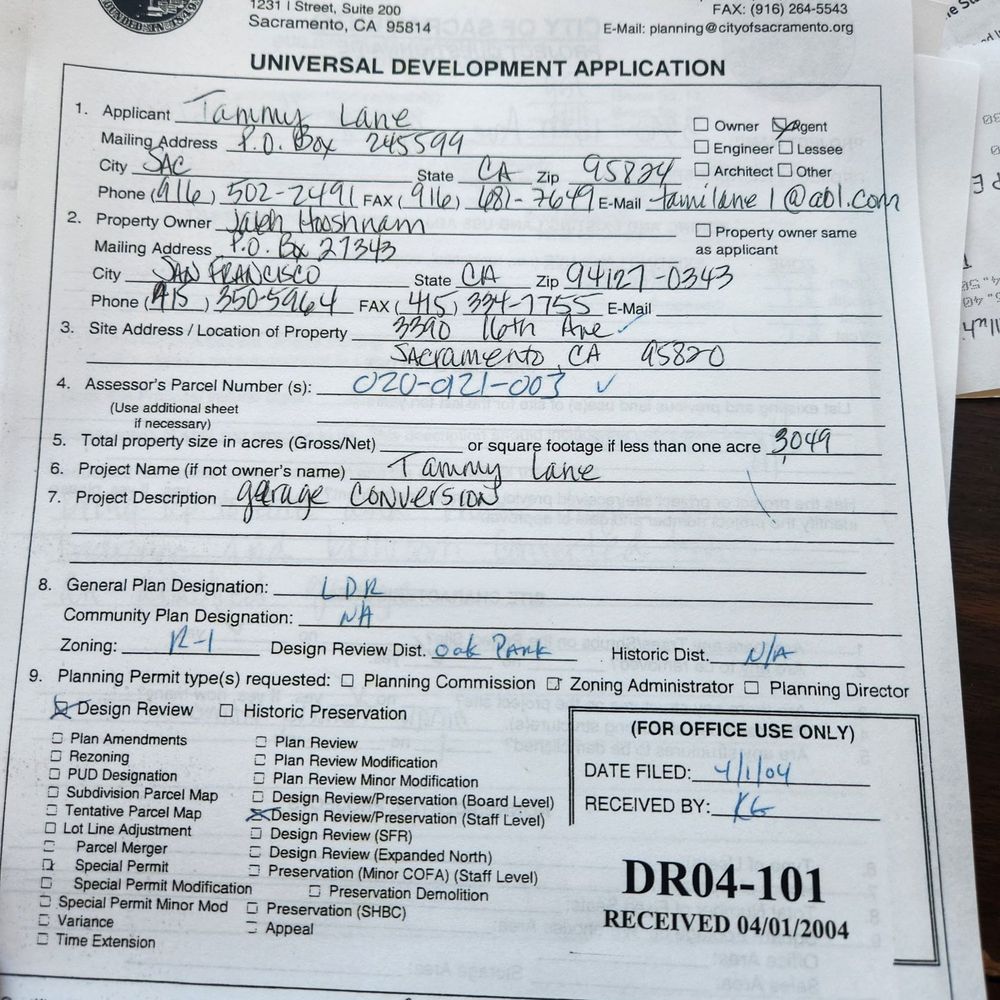 1231 I Street, Suite 200
Sacramento, CA 95814
FAX: (916) 264-5543
E-Mail: planning@cityofsacramento.org
UNIVERSAL DEVELOPMENT APPLICATION
1. Applicant Tammy Lane
☐ Owner ☑ Agent
Mailing Address P.O. Box 245599
☐ Engineer ☐ Lessee
City SAC State CA Zip 95824
☐ Architect ☐ Other
Phone (916) 502-2491 FAX (916) 681-7649 E-Mail tamilane1@aol.com
2. Property Owner Jaleh Hooshnam
☐ Property owner same as applicant
Mailing Address P.O. Box 27343
City SAN FRANCISCO State CA Zip 94127-0343
Phone (415) 350-5964 FAX (415) 334-7755 E-Mail
3. Site Address / Location of Property 3390 16th Ave ✓
Sacramento, CA 95820
4. Assessor's Parcel Number (s): 020-021-003 ✓
(Use additional sheet
if necessary)
5. Total property size in acres (Gross/Net) or square footage if less than one acre 3049
6. Project Name (if not owner's name) Tammy Lane
7. Project Description garage conversion
8. General Plan Designation: LDR
Community Plan Designation: NA
Zoning: R-1 Design Review Dist. Oak Park Historic Dist. N/A
9. Planning Permit type(s) requested: ☐ Planning Commission ☐ Zoning Administrator ☐ Planning Director
☒ Design Review ☐ Historic Preservation
☐ Plan Amendments
☐ Rezoning
☐ PUD Designation
☐ Subdivision Parcel Map
☐ Tentative Parcel Map
☐ Lot Line Adjustment
☐ Parcel Merger
☐ Special Permit
☐ Special Permit Modification
☐ Special Permit Minor Mod
☐ Variance
☐ Time Extension
☐ Plan Review
☐ Plan Review Modification
☐ Plan Review Minor Modification
☐ Design Review/Preservation (Board Level)
☒ Design Review/Preservation (Staff Level)
☐ Design Review (SFR)
☐ Design Review (Expanded North)
☐ Preservation (Minor COFA) (Staff Level)
☐ Preservation Demolition
☐ Preservation (SHBC)
☐ Appeal
(FOR OFFICE USE ONLY)
DATE FILED: 4/1/04
RECEIVED BY: KG
DR04-101
RECEIVED 04/01/2004